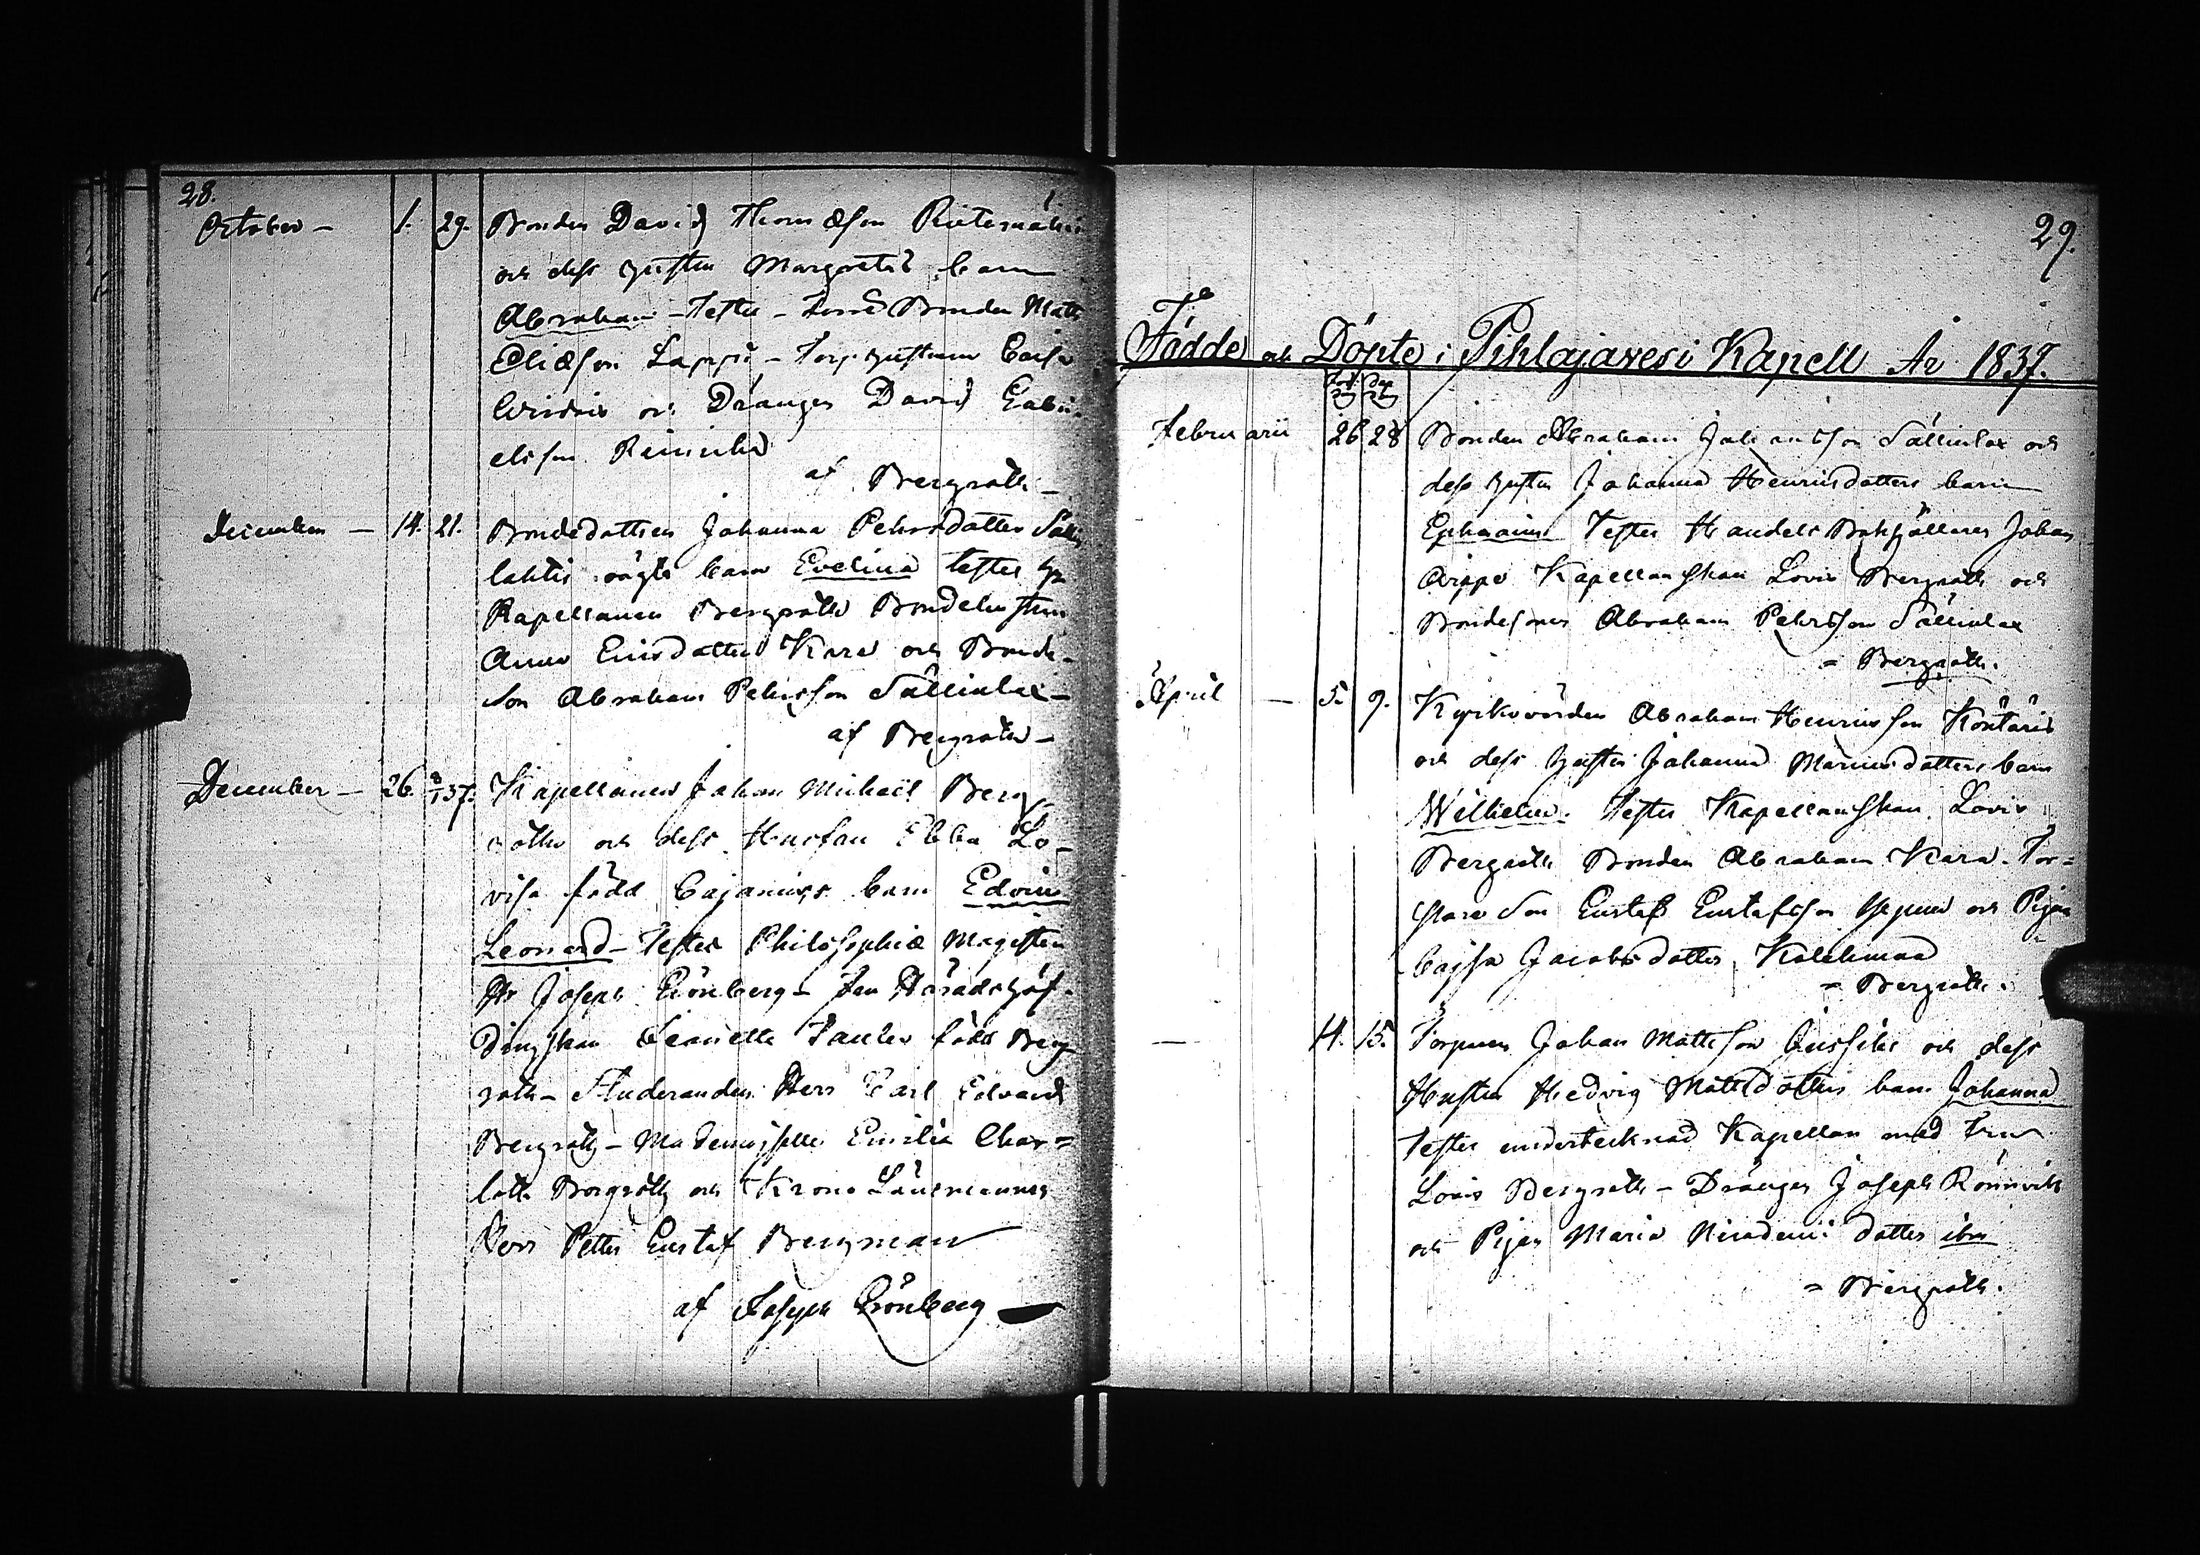 28.
October – 1. 29. Bonden David Thomæson
och dess hustru Margreta barn
Abraham – Testes – Bonden Matts
Eliæson Lappi – Torp hustrun Caisa
och Drängen David Gabri-
elsson
af Bergroth –
December – 14. 21. Bondedottren Johanna Pehrsdotter
lahtis oägta barn Evelina testes
Kapellanen Bergroth Bondehustrun
Anna Ericsdotter Kara och Bonde-
son Abraham Pehrsson Sällinlax –
af Bergroth –
December – 26. 8/1 37. Kapellanen Johan Michael Berg-
roths och dess Hustru Ebba Lo-
visa född Cajanus's barn Edvin
Leonard – Testes Philosophiæ Magistern
Hr Joseph Grönberg – Häradshöf-
dingskan född Berg
roth – Studeranden Herr Carl Edvard
Bergroth – Mademoiselle Emilia Char=
lotta Bergroth och Krono Länsmannen
Herr Petter Gustaf Bergman
af Joseph Grönberg
29.
Födde och Döpte i Pihlajavesi Kapell År 1837.
Februarii 26 28 Bonden Abraham Johansson Sällinlax och
dess hustru Johanna Henricsdotters barn
Ephraim Testes Handels Bokhållaren Johan
Kapellanskan Lovis Bergroth och
Bondesonen Abraham Pehrsson Sällinlax
= Bergroth.
April – 5. 9. Kyrkovärden Abraham Henricsson
och dess hustru Johanna dotters barn
Wilhelm. Testes Kapellanskan Lovis
Bergroth Bonden Abraham Kara. Tor=
pare Son Gustaf Gustafsson och Pigan
Cajsa Jacobsdotter
= Bergroth.
— 14. 15. Torparen Johan Mattsson och dess
Hustru Hedvig Mattsdotters barn Johanna
Testes undertecknad Kapellan med Frun
Lovis Bergroth – Drängen Joseph
och Pigan Maria dotter ibm
= Bergroth.